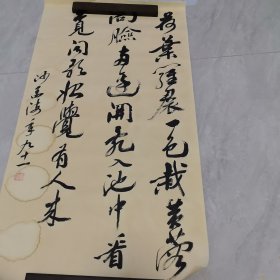 荷葉羅裙一色裁芙蓉
向臉兩邊開亂入池中看
不見聞歌始覺有人来
沙孟海年九十一